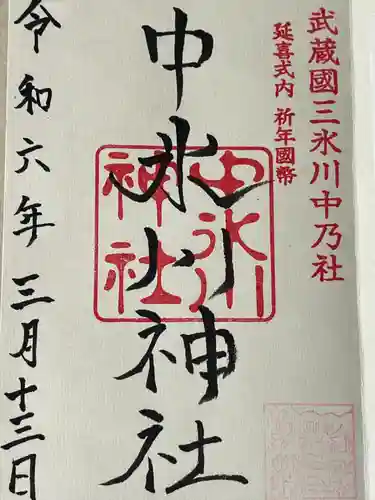 武蔵國三氷川中乃社
延喜式内 祈年國幣
中氷川神社
中氷川
神社
令和六年三月十三日